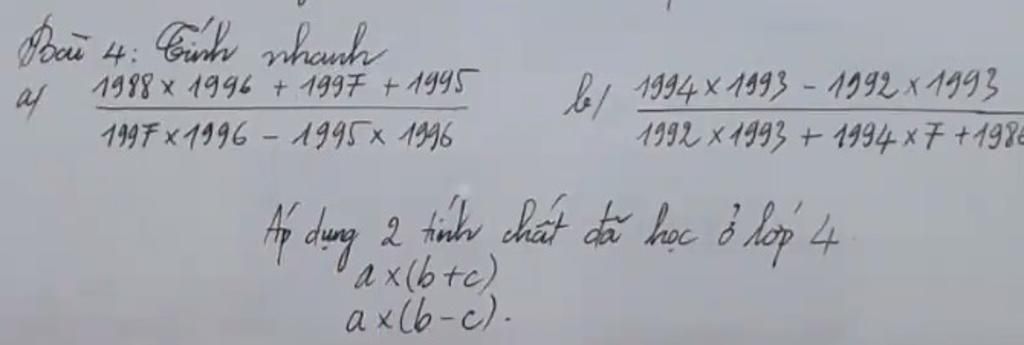 Bài 4: Tính nhanh
a/ 1988 x 1996 + 1997 + 1995
1997 x 1996 - 1995 x 1996
b/ 1994 x 1993 - 1992 x 1993
1992 x 1993 + 1994 x 7 +
Áp dụng 2 tính chất đã học ở lớp 4
a x (b + c)
a x (b - c).